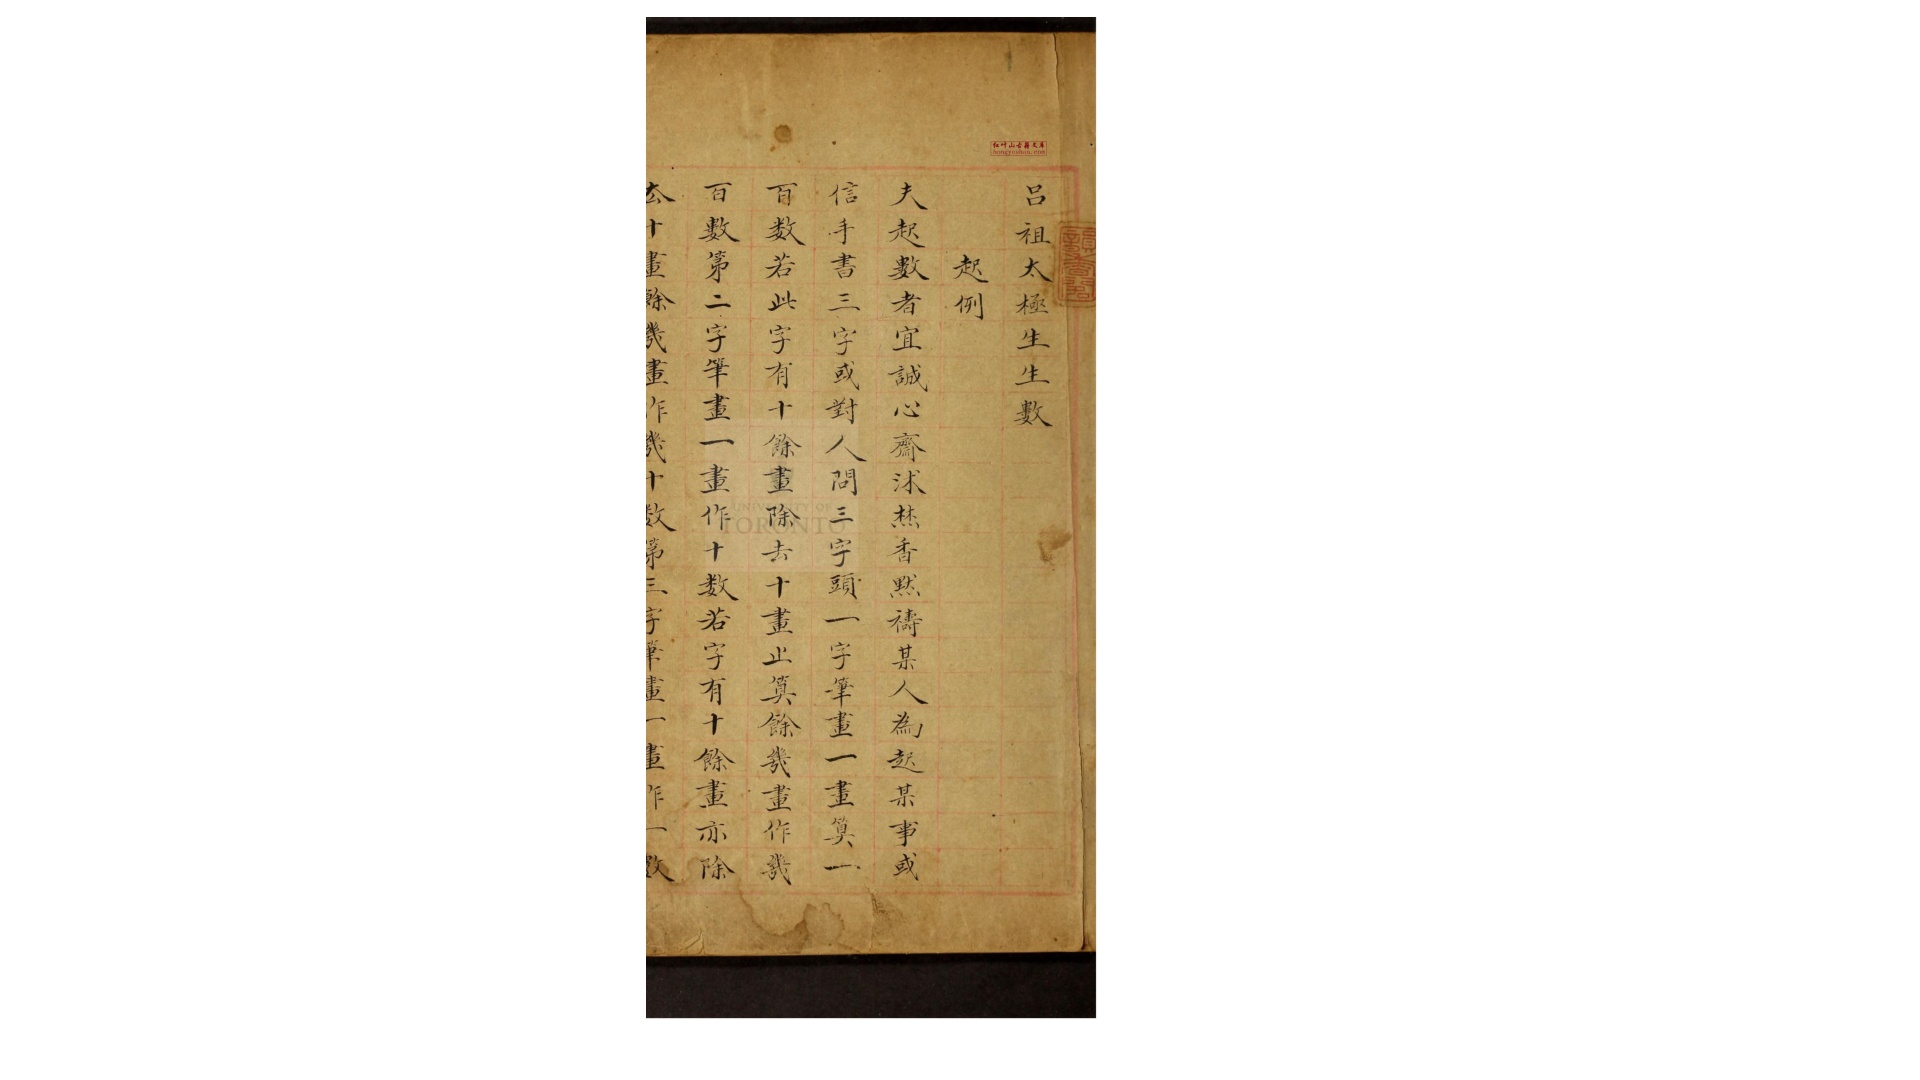 呂祖太極生生數
起例
夫起數者宜誠心齋沐焚香默禱某人為起某事或
信手書三字或對人問三字頭一字筆畫一畫算一
百数若此字有十餘畫除去十畫止算餘幾畫作幾
百數第二字筆畫一畫作十数若字有十餘畫亦除
去十畫餘幾畫作幾十数第三字筆畫一畫作一数
红叶山古籍文库
hongyeshan.com
UNIVERSITY OF
TORONTO